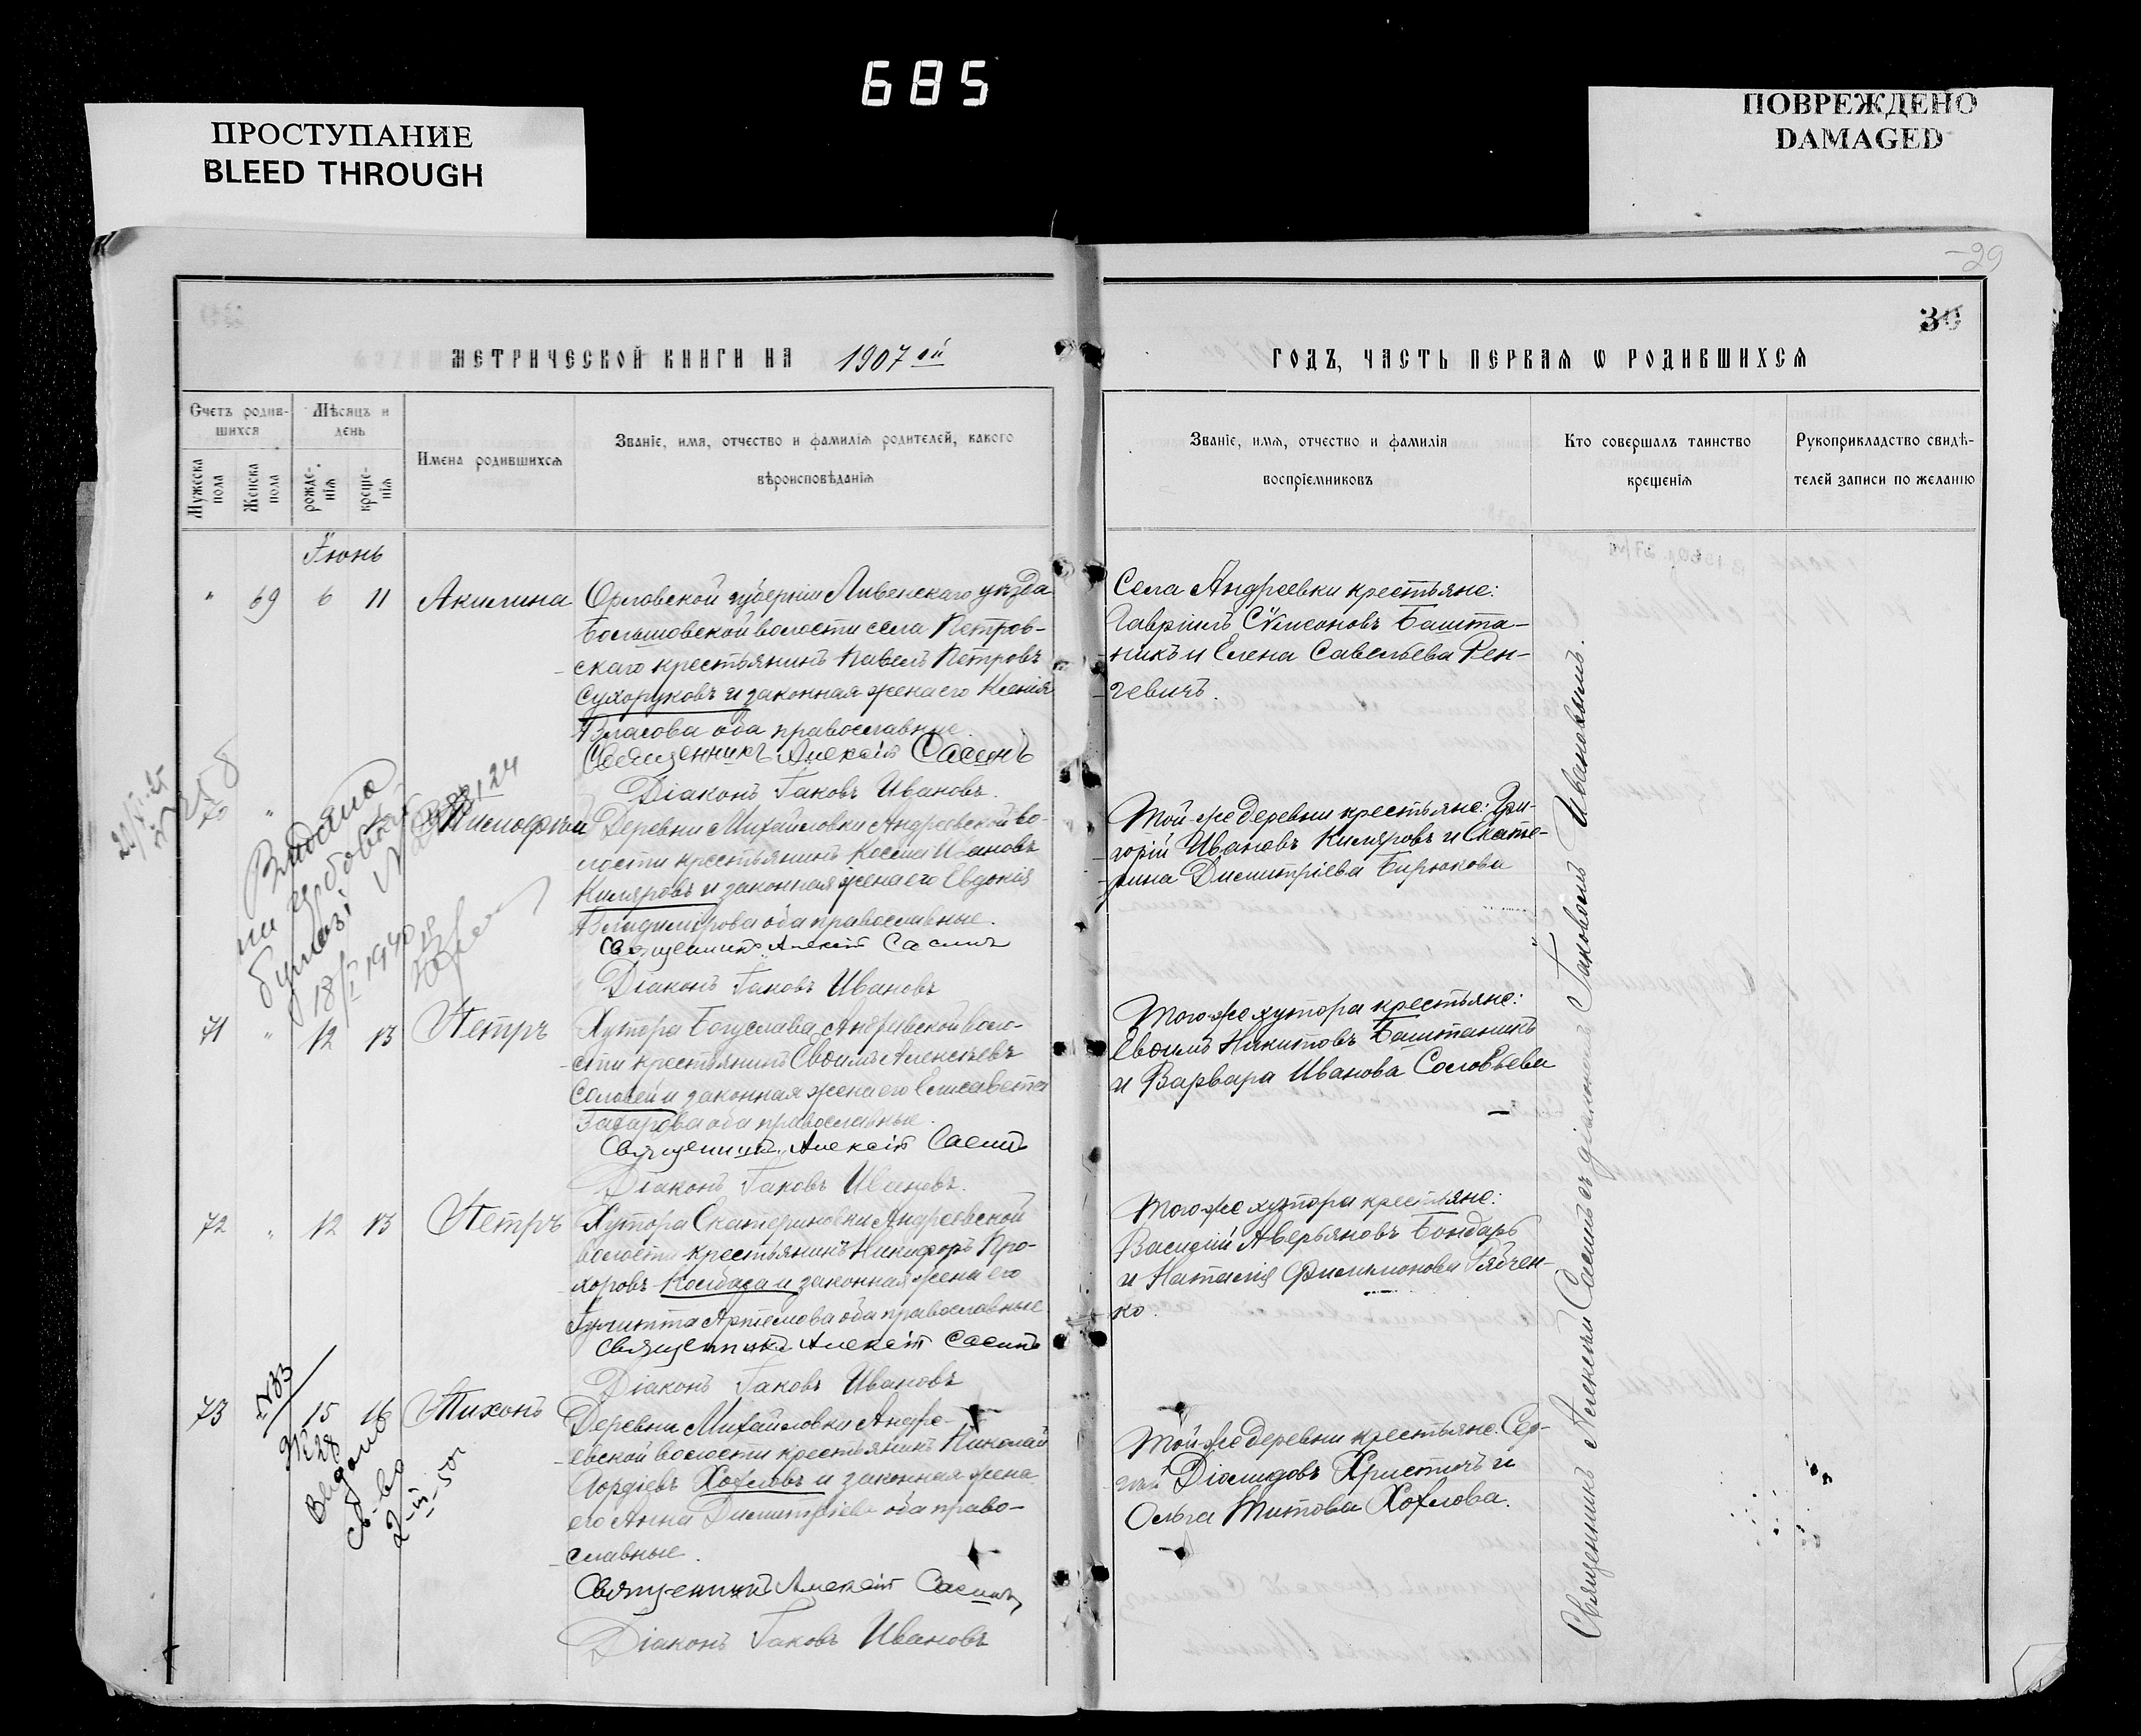 685
ПРОСТУПАНИЕ
BLEED THROUGH
ПОВРЕЖДЕНО
DAMAGED
29
30
МЕТРИЧЕСКОЙ КНИГИ НА 1907 ій
ГОДЪ, ЧАСТЬ ПЕРВАЯ Ѡ РОДИВШИХСЯ
Счетъ родив-
шихся
Мѣсяцъ и
день
Мужеска
пола
Женска
пола
рожде-
нія
креще-
нія
Имена родившихся
Званіе, имя, отчество и фамилія родителей, какого
вѣроисповѣданія
Званіе, имя, отчество и фамилія
воспріемниковъ
Кто совершалъ таинство
крещенія
Рукоприкладство свидѣ-
телей записи по желанію
Іюнь
" 69 6 11 Акилина
Орловской губерніи Ливенскаго уѣзда
волости села Петров-
скаго крестьянинъ Павелъ Петровъ
Сухоруковъ и законная жена его Ксенія
Власова оба православные.
Священникъ Алексій Сасинъ
Діаконъ Іаковъ Ивановъ.
Села Андреевки крестьяне:
Гавріилъ Сѵмеоновъ Башта-
никъ и Елена Савельева Рен-
гевичъ.
70 "
Деревни Михайловки Андреевской во-
лости крестьянинъ Косма Ивановъ
Киляровъ и законная жена его Евдокія
Владимірова оба православные.
Священникъ Алексій Сасинъ
Діаконъ Іаковъ Ивановъ
Той-же деревни крестьяне: Гри-
горій Ивановъ Киляровъ и Екате-
рина Димитріева Бирюкова
Видано
18/I 1940
71 " 12 13 Петръ
Хутора Богуслава Андреевской воло-
сти крестьянинъ Евѳимъ Алексѣевъ
Соловей и законная жена его Елисавета
Захарова оба православные.
Священникъ Алексій Сасинъ
Діаконъ Іаковъ Ивановъ.
Того-же хутора крестьяне:
Евѳимъ Никитовъ Баштаникъ
и Варвара Иванова Соловьева
72 " 12 13 Петръ
Хутора Екатериновки Андреевской
волости крестьянинъ Никифоръ Про-
хоровъ Колбаса и законная жена его
Іулитта Артемова оба православные
Священникъ Алексій Сасинъ
Діаконъ Іаковъ Ивановъ
Того-же хутора крестьяне:
Василій Аверьяновъ Бондарь
и Наталія Филимонова Рябчен-
ко.
73 " 15 16 Тихонъ
Деревни Михайловки Андре-
евской волости крестьянинъ Николай
Гордіевъ Хохловъ и законная жена
его Анна Димитріева оба право-
славные.
Священникъ Алексій Сасинъ
Діаконъ Іаковъ Ивановъ
Той-же деревни крестьяне: Сер-
гій Діомидовъ Христичъ и
Ольга Титова Хохлова.
Видано
св-во
Священникъ Алексѣй Сасинъ съ діакономъ Іаковомъ Ивановымъ.